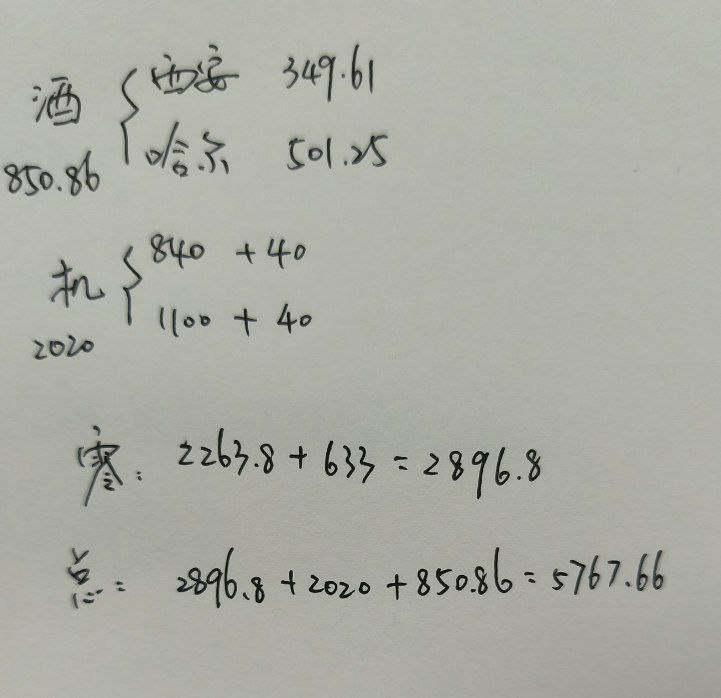 酒 西安 349.61
850.86 哈尔 501.25
机 840 + 40
2020 1100 + 40
寒: 2263.8 + 633 = 2896.8
总: 2896.8 + 2020 + 850.86 = 5767.66